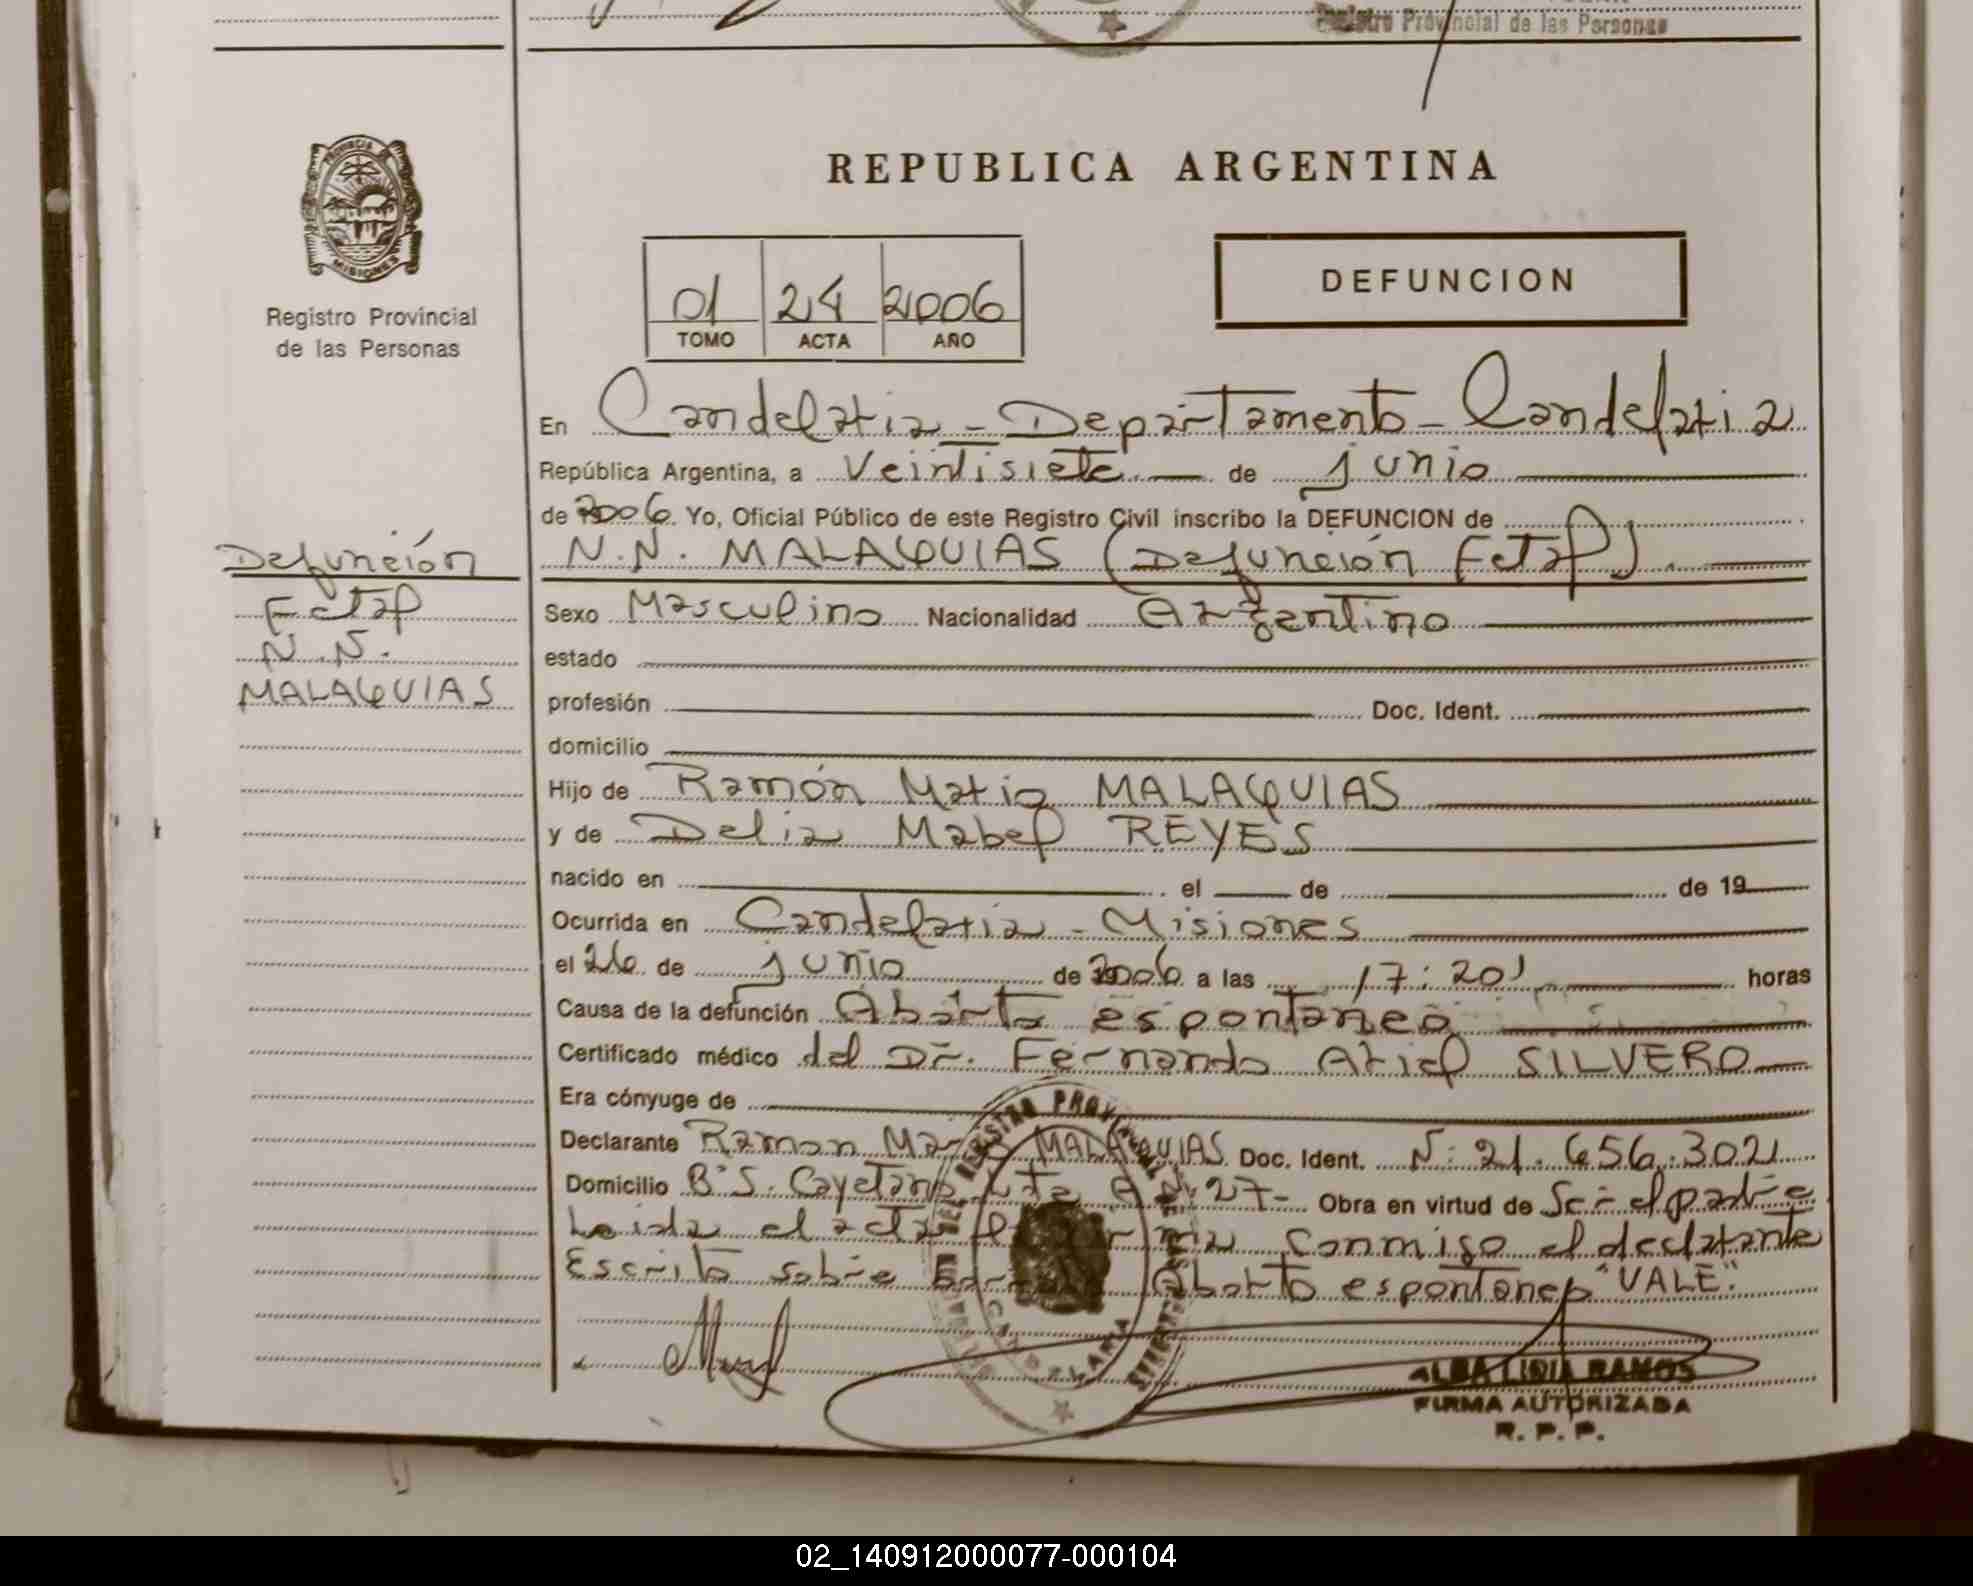 Registro Provincial de las Personas
PROVINCIA DE
MISIONES
Registro Provincial
de las Personas
REPUBLICA ARGENTINA
01 24 2006
TOMO ACTA AÑO
DEFUNCION
Defunción
Fetal
N.N.
MALAQUIAS
En Candelaria - Departamento - Candelaria
República Argentina, a Veintisiete de junio
de 2006 Yo, Oficial Público de este Registro Civil inscribo la DEFUNCION de
N.N. MALAQUIAS (Defunción Fetal)
Sexo Masculino Nacionalidad Argentino
estado
profesión Doc. Ident.
domicilio
Hijo de Ramón Mario MALAQUIAS
y de Delia Mabel REYES
nacido en el de de 19
Ocurrida en Candelaria - Misiones
el 26 de junio de 2006 a las 17:20' horas
Causa de la defunción Aborto espontaneo
Certificado médico del Dr. Fernando Ariel SILVERO
Era cónyuge de
Declarante Ramon MALAQUIAS Doc. Ident. N: 21.656.302
Domicilio B° S. Cayetano 27- Obra en virtud de Ser el padre
Leida el acta conmigo el declarante
Escrito sobre Aborto espontaneo "VALE".
REGISTRO PROVINCIAL DE LAS
CANDELARIA
ALBA LIDIA RAMOS
FIRMA AUTORIZADA
R. P. P.
02_140912000077-000104